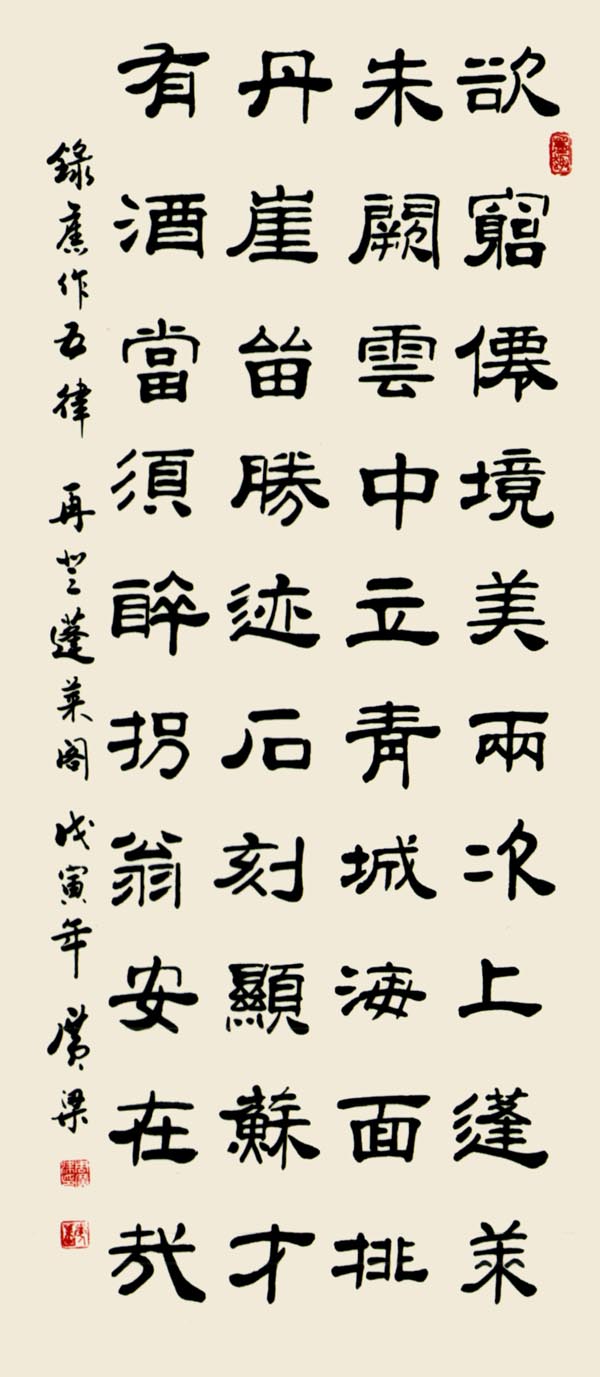 欲窮僊境美兩次上蓬萊
朱闕雲中立青城海面排
丹崖留勝迹石刻顯蘇才
有酒當須醉拐翁安在哉
錄舊作五律 再登蓬萊阁 戊寅年 廣梁